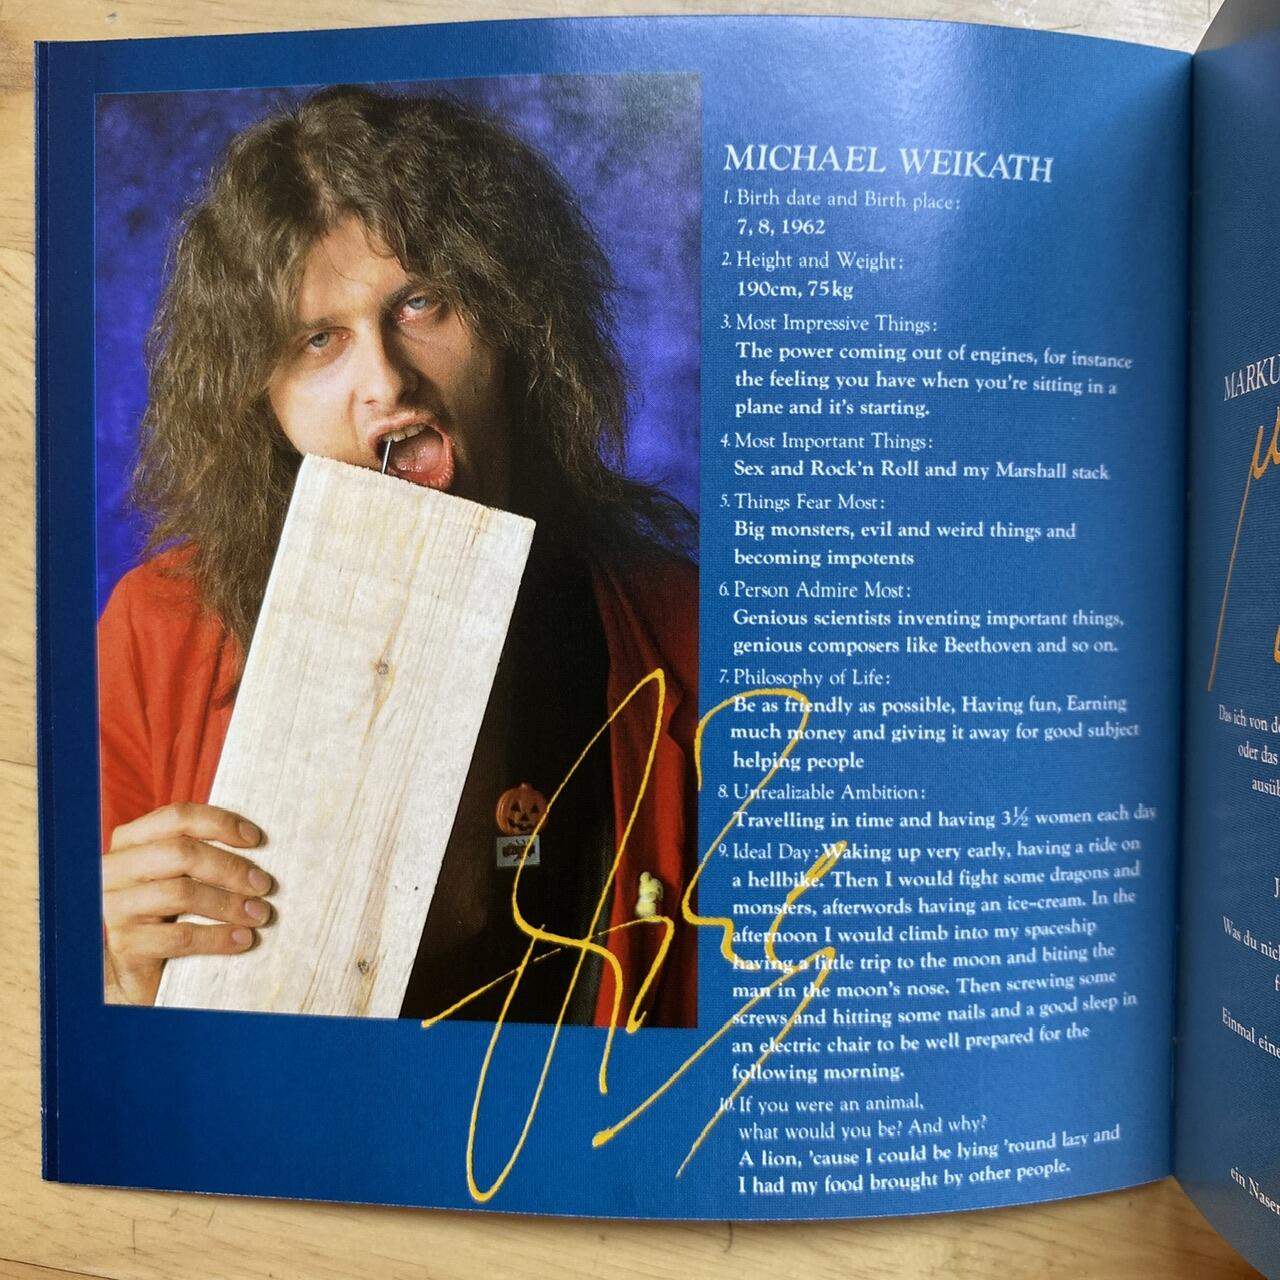 MICHAEL WEIKATH
1. Birth date and Birth place:
7, 8, 1962
2. Height and Weight:
190cm, 75kg
3. Most Impressive Things:
The power coming out of engines, for instance
the feeling you have when you're sitting in a
plane and it's starting.
4. Most Important Things:
Sex and Rock'n Roll and my Marshall stack
5. Things Fear Most:
Big monsters, evil and weird things and
becoming impotents
6. Person Admire Most:
Genious scientists inventing important things,
genious composers like Beethoven and so on.
7. Philosophy of Life:
Be as friendly as possible, Having fun, Earning
much money and giving it away for good subject
helping people
8. Unrealizable Ambition:
Travelling in time and having 3½ women each day
9. Ideal Day: Waking up very early, having a ride on
a hellbike. Then I would fight some dragons and
monsters, afterwords having an ice-cream. In the
afternoon I would climb into my spaceship
having a little trip to the moon and biting the
man in the moon's nose. Then screwing some
screws and hitting some nails and a good sleep in
an electric chair to be well prepared for the
following morning.
10. If you were an animal,
what would you be? And why?
A lion, 'cause I could be lying 'round lazy and
I had my food brought by other people.
MARKU
Das ich von
oder das
ausüb
Was du nic
Einmal eine
ein Nasen